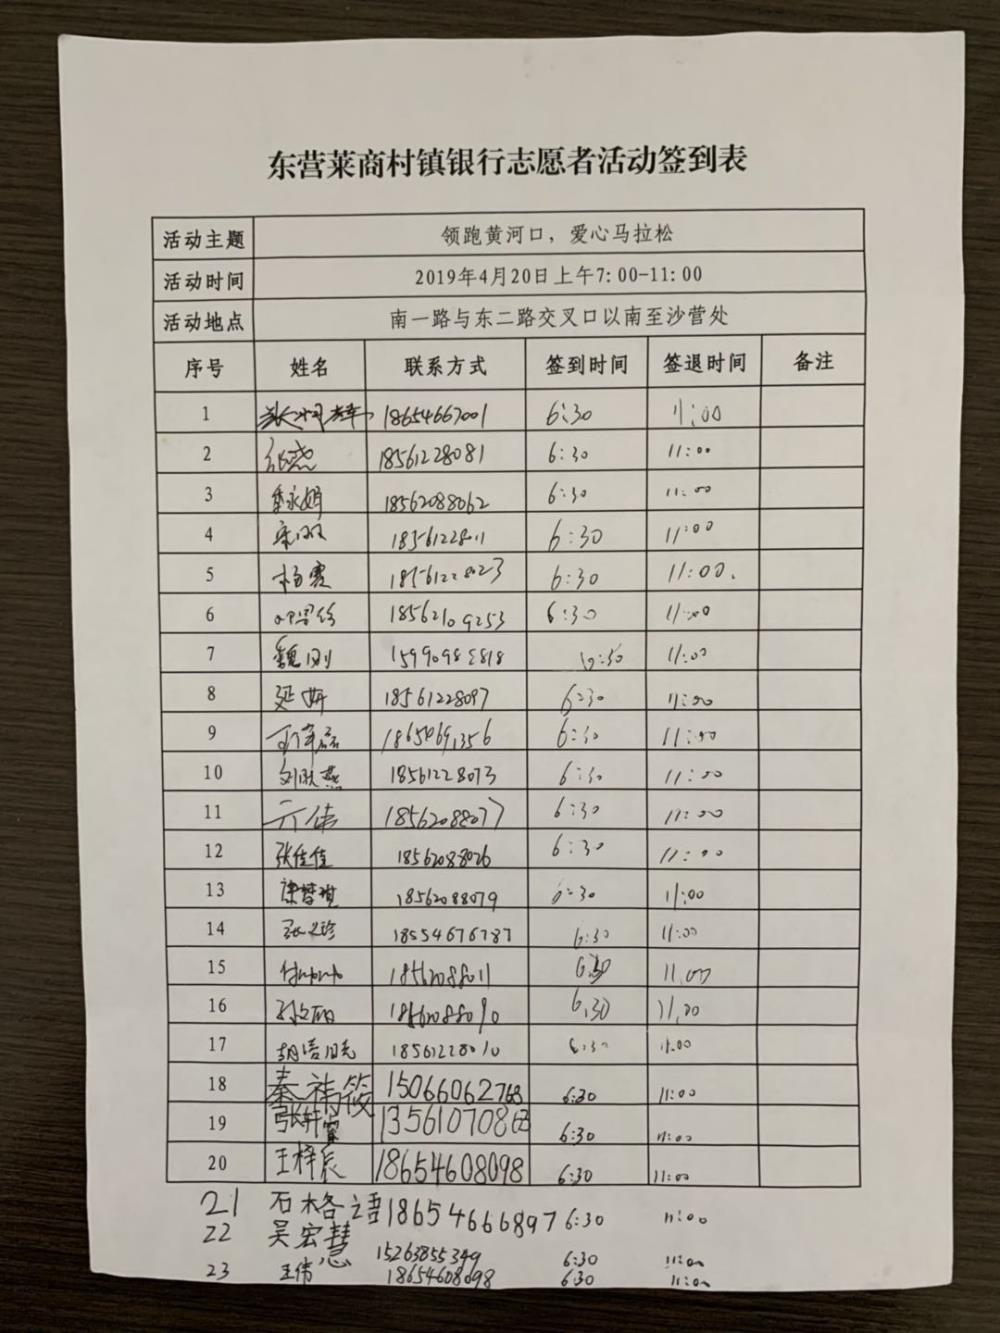 东营莱商村镇银行志愿者活动签到表
活动主题 领跑黄河口，爱心马拉松
活动时间 2019年4月20日上午7:00-11:00
活动地点 南一路与东二路交叉口以南至沙营处
序号 姓名 联系方式 签到时间 签退时间 备注
1 18654667001 6:30 11:00
2 18561228081 6:30 11:00
3 季永娟 18562088062 6:30 11:00
4 宋双 18561228011 6:30 11:00
5 杨霞 18561228023 6:30 11:00.
6 18562109253 6:30 11:00
7 魏刚 11:00
8 延妍 18561228097 6:30 11:00
9 18654691356 6:30 11:00
10 刘欣燕 18561228073 6:30 11:00
11 亓伟 18562088077 6:30 11:00
12 张佳佳 18562088026 6:30 11:00
13 18562088079 6:30 11:00
14 18554676787 6:30 11:00
15 6:30 11:00
16 18562088090 6:30 11:00
17 18561228010 6:30 11:00
18 秦祎筱 15066062768 6:30 11:00
19 张轩宾 6:30 11:00
20 王梓辰 18654608098 6:30 11:00
21 石格语 18654666897 6:30 11:00
22 吴宏慧 15263855349 6:30 11:00
23 王伟 18654608098 6:30 11:00